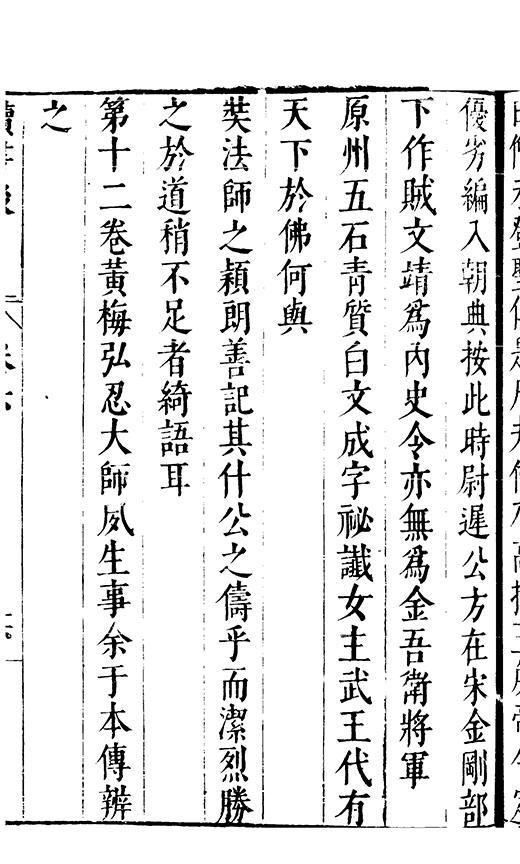 優劣編入朝典按此時尉遲公方在宋金剛部
下作賊文靖爲内史令亦無爲金吾衛將軍
原州五石青質白文成字祕讖女主武王代有
天下於佛何與
奘法師之穎朗善記其什公之儔乎而潔烈勝
之於道稍不足者綺語耳
第十二卷黄梅弘忍大師夙生事余于本傳辨
之